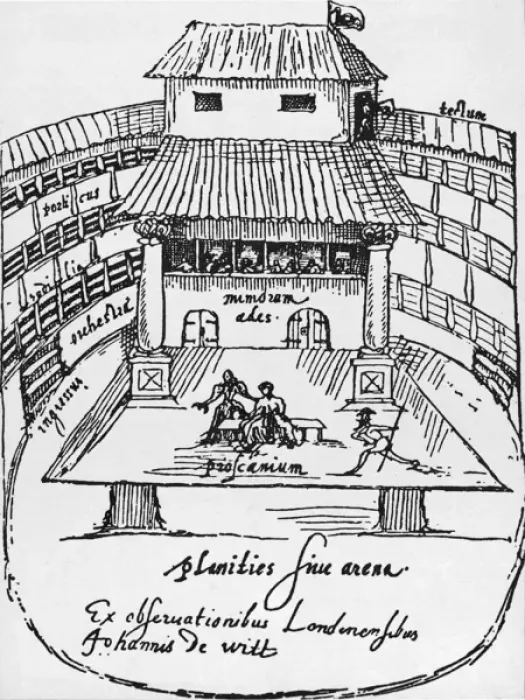 tectum
porticus
sedilia
orchestra
mimorum
ades.
ingressus
proscænium
planities siue arena.
Ex obseruationibus Londinensibus
Johannis De witt